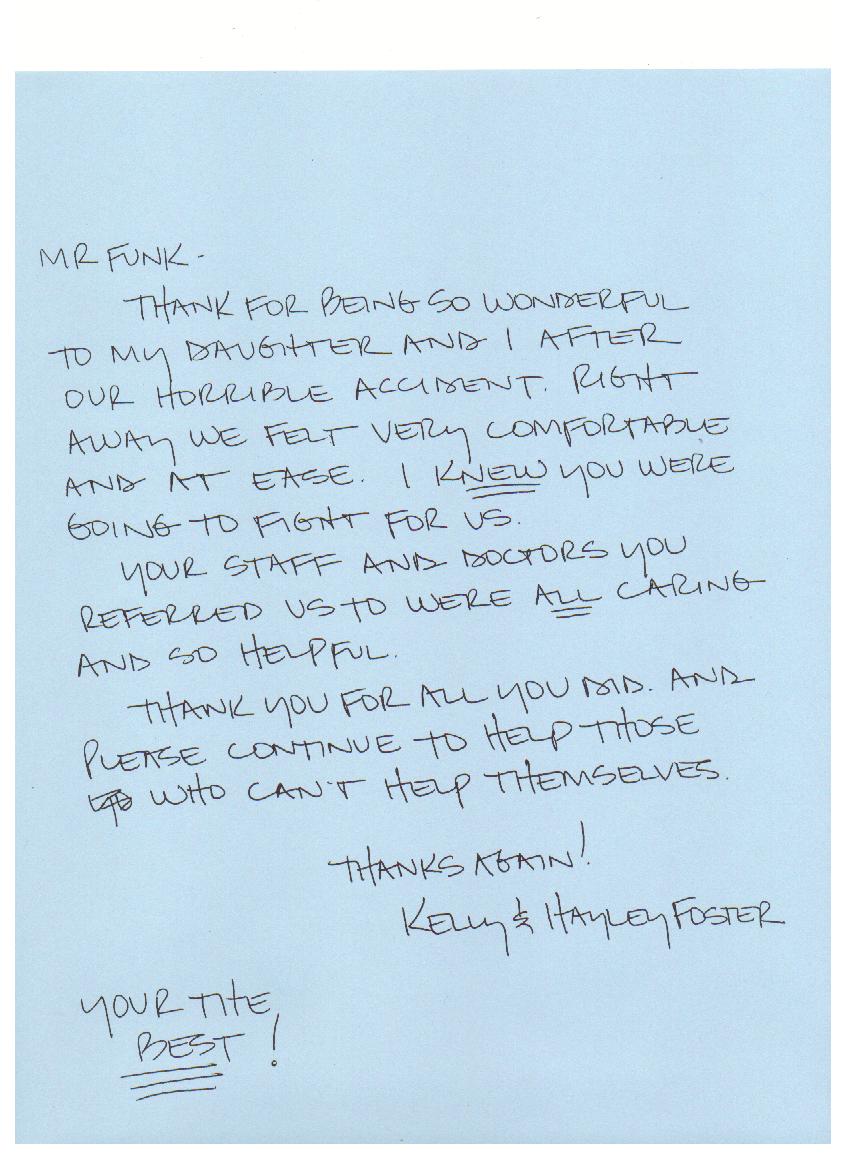 MR FUNK -
THANK FOR BEING SO WONDERFUL
TO MY DAUGHTER AND I AFTER
OUR HORRIBLE ACCIDENT. RIGHT
AWAY WE FELT VERY COMFORTABLE
AND AT EASE. I KNEW YOU WERE
GOING TO FIGHT FOR US.
YOUR STAFF AND DOCTORS YOU
REFERRED US TO WERE ALL CARING
AND SO HELPFUL.
THANK YOU FOR ALL YOU DID. AND
PLEASE CONTINUE TO HELP THOSE
WHO CAN'T HELP THEMSELVES.
THANKS AGAIN!
KELLY & HAYLEY FOSTER
YOUR THE
BEST!